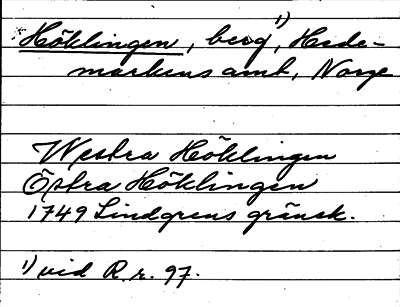 Höklingen, berg¹⁾, Hede-
markens amt, Norge
Westra Höklingen
Östra Höklingen
1749 Lindgrens gränsk.
¹⁾ vid R.r. 97.